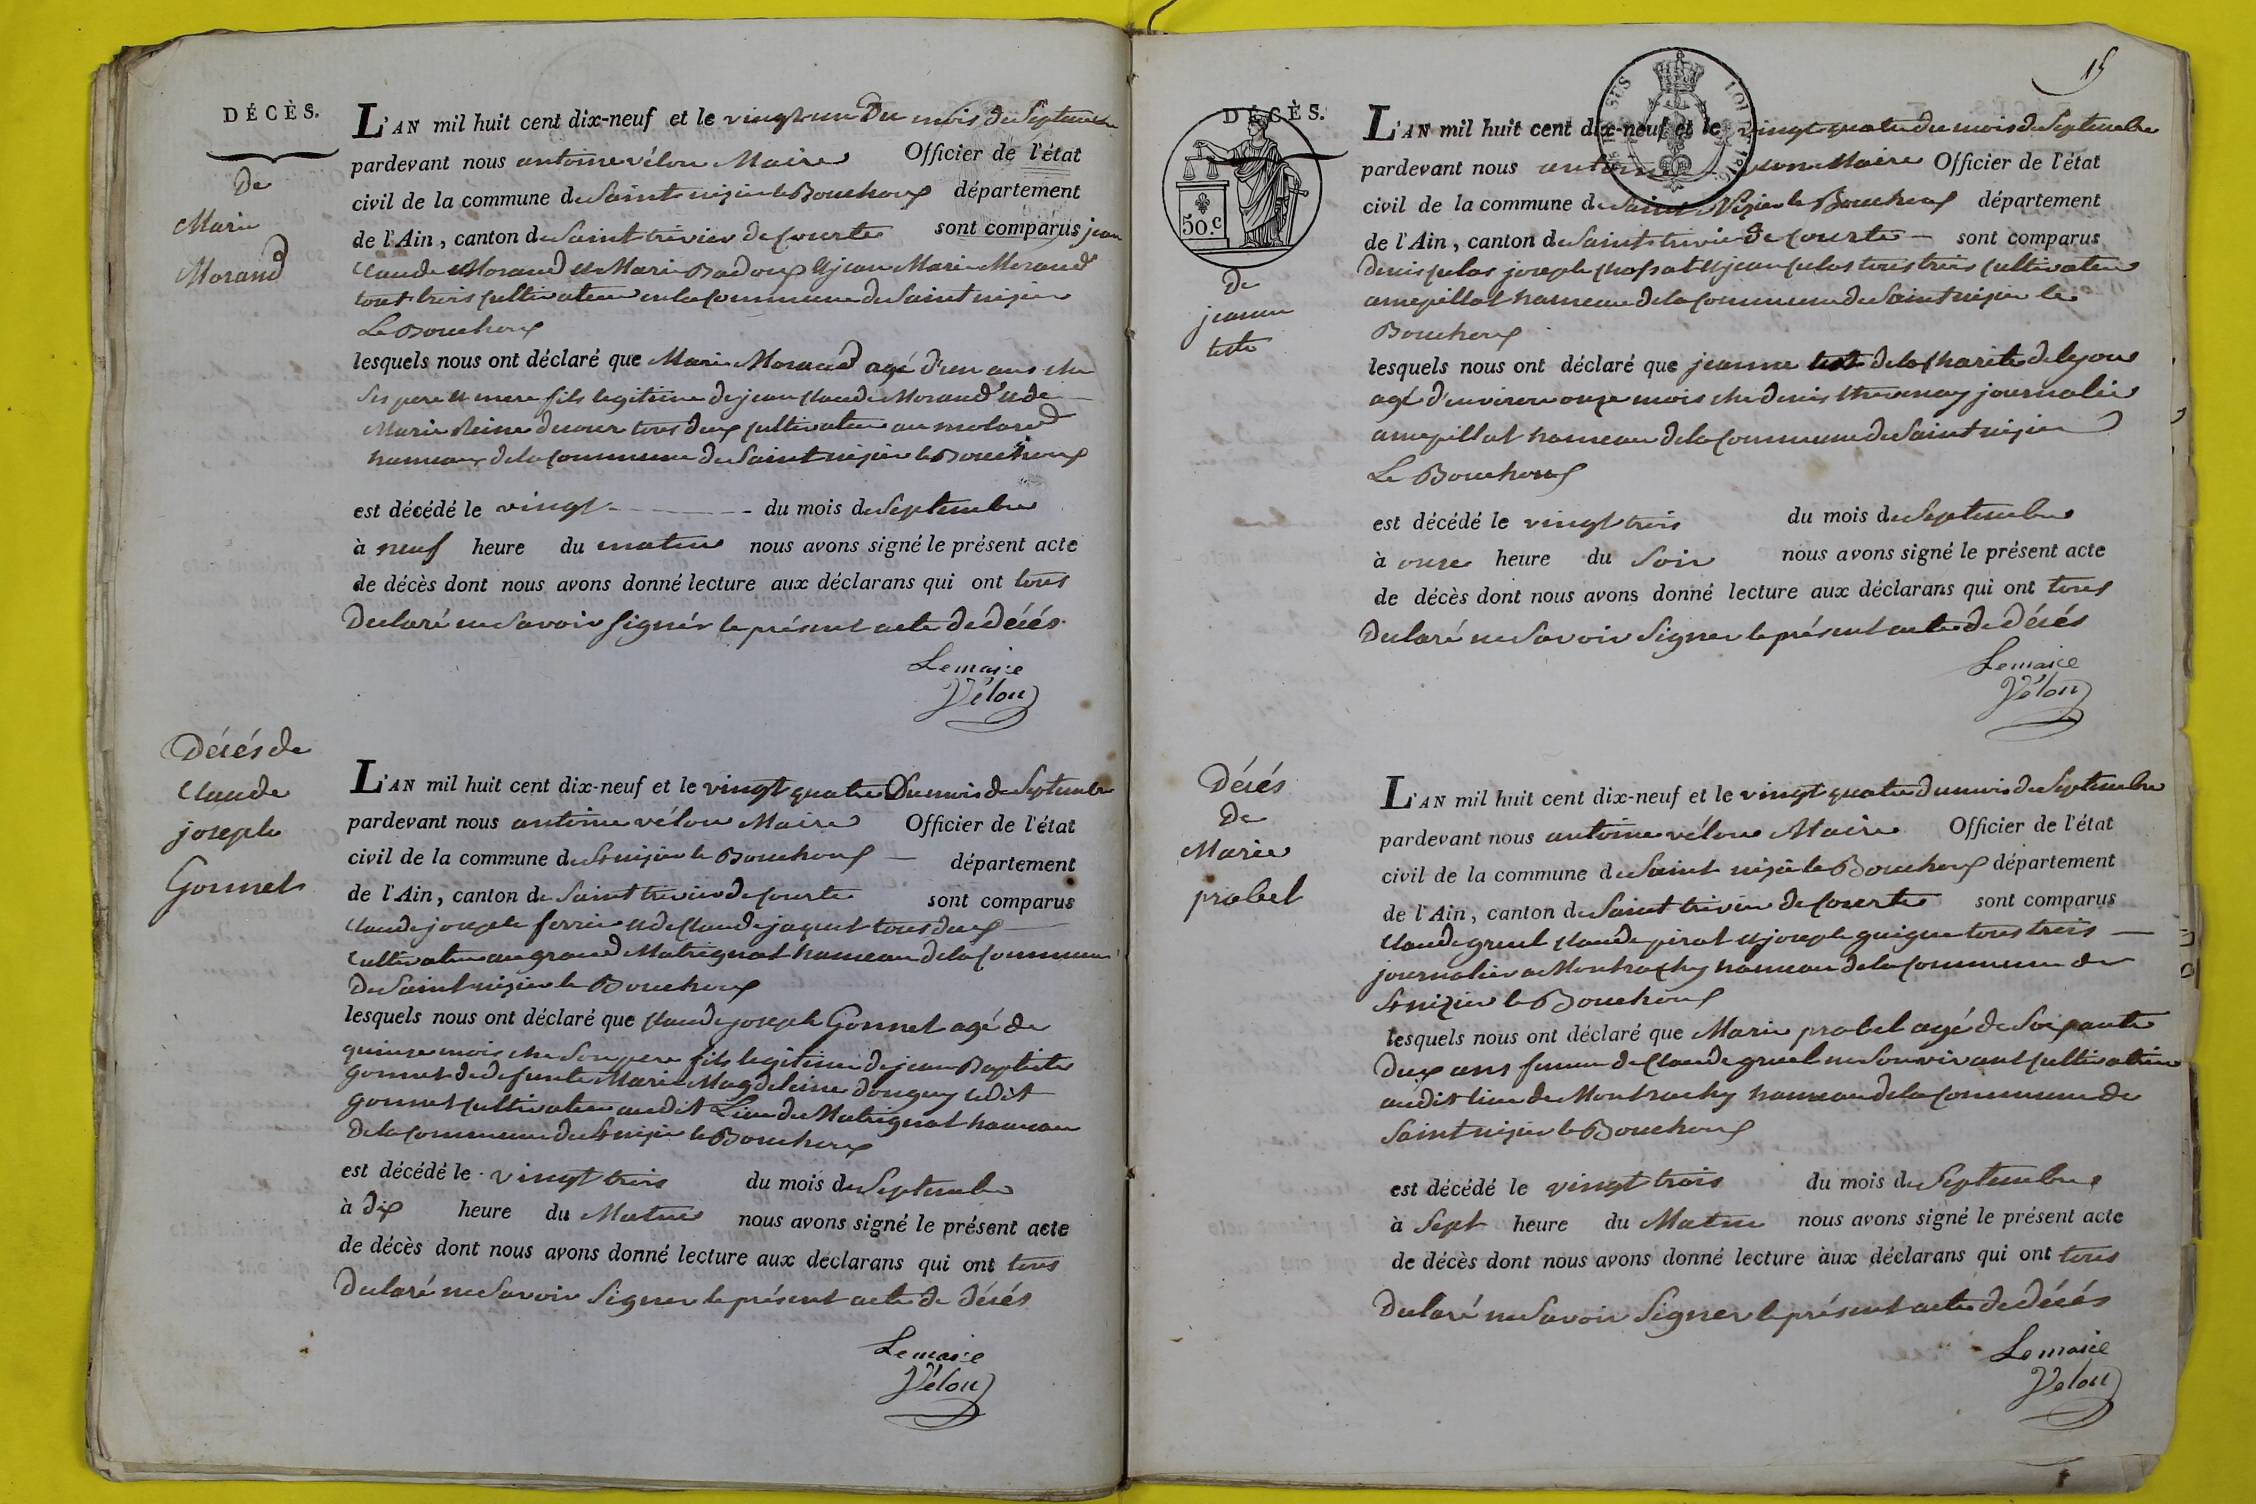 DÉCÈS.
De
Marie
Morand
L'AN mil huit cent dix-neuf et le vingt un Du mois de Septembre
pardevant nous antoine vélon Maire Officier de l'état
civil de la commune de Saint nizier le Bouchoux département
de l'Ain, canton de Saint trivier de Courte sont comparus jean
Claude Morand et Marie Badoux et jean Marie Morand
tout trois cultivateur en la Commune de Saint nizier
Le Bouchoux
lesquels nous ont déclaré que Marie Morand agé d'un ans che
Ses pere et mere fils legitime de jean Claude Morand et de
Marie Reine ducour tous deux cultivateur au molard
hameaux de la Commune de Saint nizier le Bouchoux
est décédé le vingt du mois de Septembre
à neuf heure du matin nous avons signé le présent acte
de décès dont nous avons donné lecture aux déclarans qui ont tous
Declaré ne Savoir signér le présent acte de décés.
Lemaire
Vélon
Décés de
Claude
joseph
Gonnet
L'AN mil huit cent dix-neuf et le vingt quatre Du mois de Septembre
pardevant nous antoine vélon Maire Officier de l'état
civil de la commune de St nizier le Bouchoux département
de l'Ain, canton de Saint trivier de Courte sont comparus
Claude joseph ferrier et de Claude jaquet tous deux
Cultivateur au grand Matrignat hameau de la Commune
De Saint nizier le Bouchoux
lesquels nous ont déclaré que Claude joseph Gonnet agé de
quinze mois che Son pere fils legitime de jean Baptiste
Gonnet de defunte Marie Magdeleine donguy ledit
Gonnet cultivateur audit Lieu de Matrignat hameau
De la Commune de St nizier le Bouchoux
est décédé le vingt trois du mois de Septembre
à dix heure du Matin nous avons signé le présent acte
de décès dont nous avons donné lecture aux déclarans qui ont tous
Declaré ne Savoir Signer le présent acte de décés
Lemaire
Vélon
15
DÉCÈS.
50.c
LOI DE 1816
De
jeanne
teste
L'AN mil huit cent dix-neuf et le vingt quatre du mois de Septembre
pardevant nous Maire Officier de l'état
civil de la commune de Saint Nizier le Bouchoux département
de l'Ain, canton de Saint trivier de Courte sont comparus
Denis joseph et jean tous trois cultivateur
a mepillat hameau de la Commune de Saint nizier le
Bouchoux
lesquels nous ont déclaré que jeanne de la Charité de lyon
agé d'environ onze mois che denis thevenay journalier
a mepillat hameau de la Commune de Saint nizier
Le Bouchoux
est décédé le vingt trois du mois de Septembre
à onze heure du Soir nous avons signé le présent acte
de décès dont nous avons donné lecture aux déclarans qui ont tous
Declaré ne Savoir Signer le présent acte de Décés
Lemaire
Vélon
Décés
De
Marie
probel
L'AN mil huit cent dix-neuf et le vingt quatre du mois de Septembre
pardevant nous antoine vélon Maire Officier de l'état
civil de la commune de Saint nizier le Bouchoux département
de l'Ain, canton de Saint trivier de Courte sont comparus
Claude gruel Claude pirat et joseph guigue tous trois
journalier a Montrachy hameau de la Commune de
St nizier le Bouchoux
lesquels nous ont déclaré que Marie probel agé de Soixante
Deux ans femme de Claude gruel me Survivant cultivateur
audit lieu de Montrachy hameau de la Commune de
Saint nizier le Bouchoux
est décédé le vingt trois du mois de Septembre
à Sept heure du Matin nous avons signé le présent acte
de décès dont nous avons donné lecture aux déclarans qui ont tous
Declaré ne Savoir Signer le présent acte de décés
Lemaire
Vélon